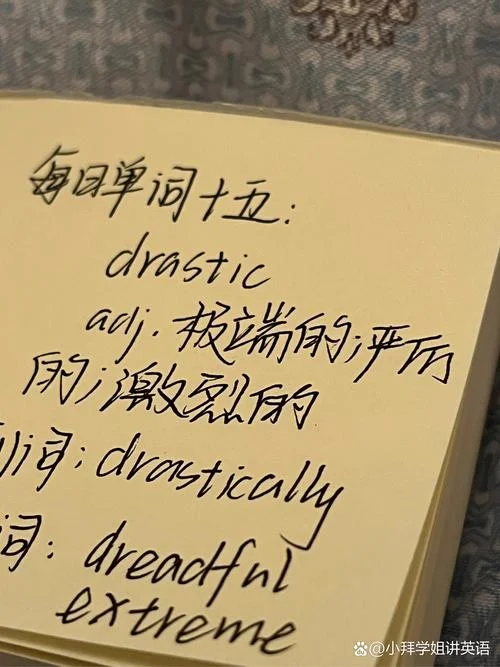 每日单词十五:
drastic
adj. 极端的;严厉
的;激烈的
词: drastically
词: dreadful
extreme
小拜学姐讲英语